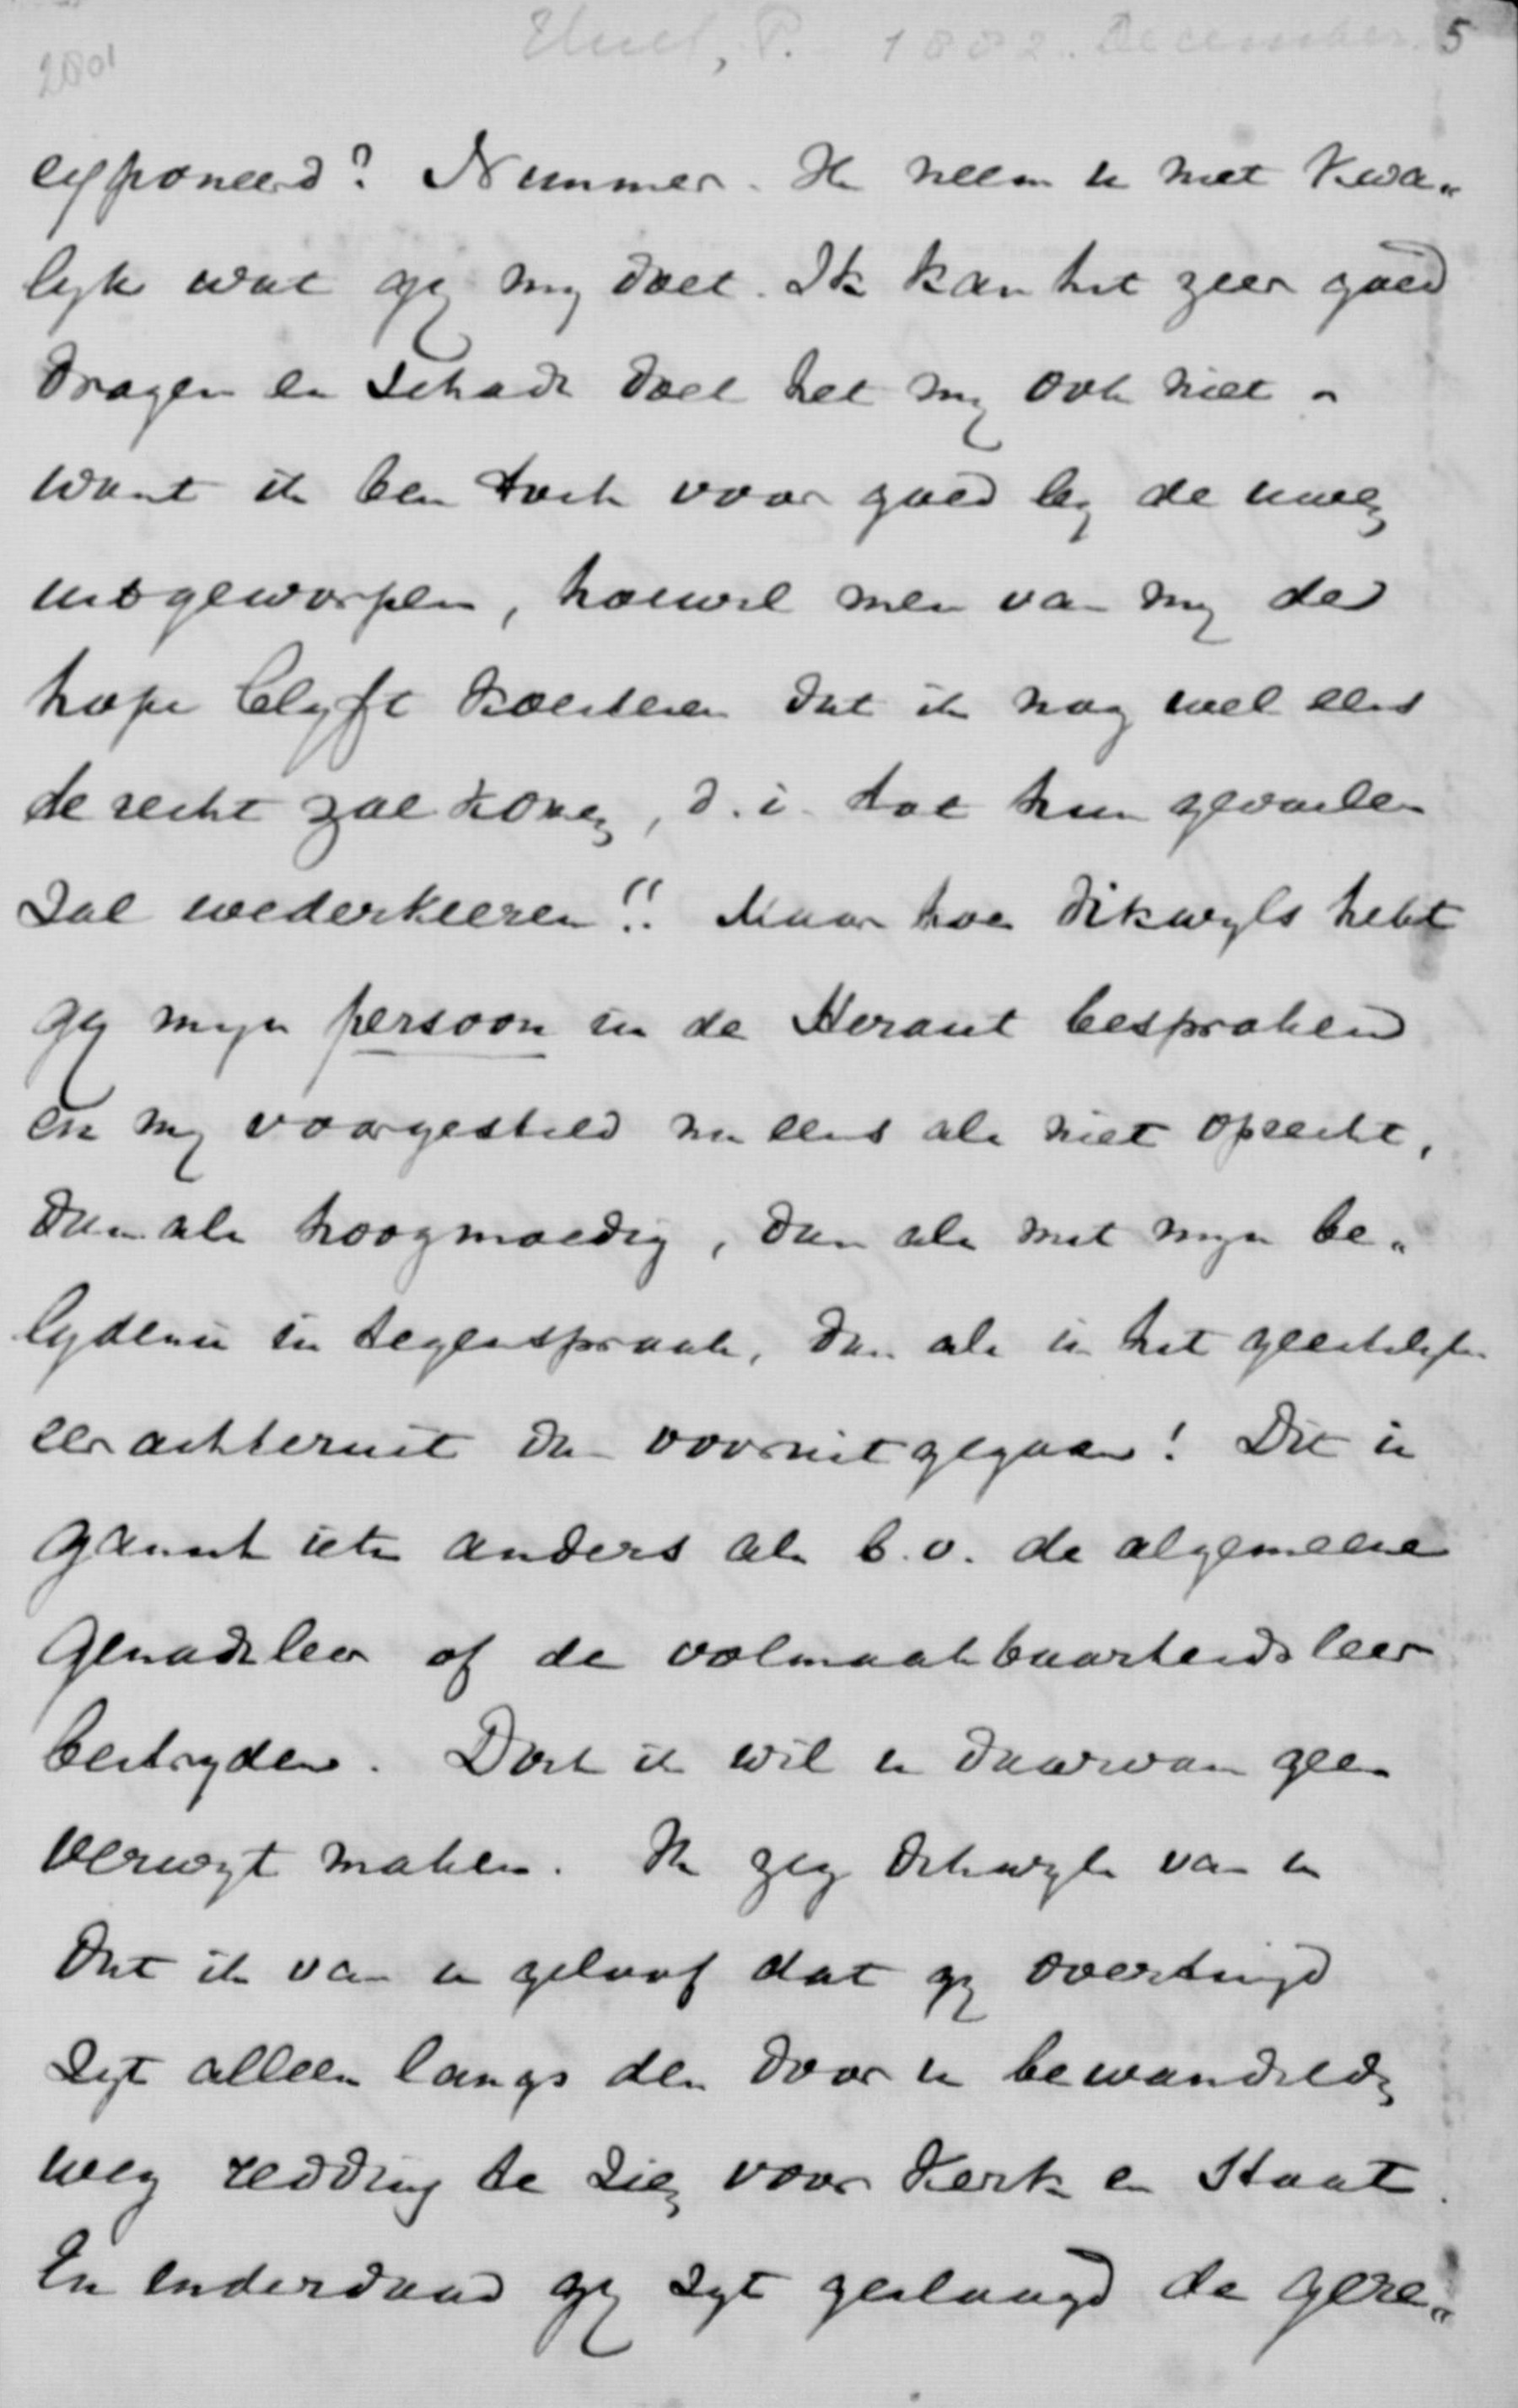 2801 P. 1882. December. 5
exponeerd? Nimmer. Ik neem u niet kwa„
lyk wat gy my doet. Ik kan het zeer goed
dragen en schade doet het my ook niet -
want ik ben toch voor goed by de uwen
uitgeworpen, hoewel men van my de
hope blyft koesteren dat ik nog wel eens
te recht zal komen, d. i. tot hun gevoelen
zal wederkeeren!! Maar hoe dikwyls hebt
gy myn persoon in de Heraut besproken
en my voorgesteld nu eens als niet oprecht,
dan als hoogmoedig, dan als met myn be„
lydenis in tegenspraak, dan als in het geestelyke
eer achteruit dan vooruitgegaan! Dit is
gansch iets anders als b.v. de algemeene
genadeleer of de volmaakbaarheidsleer
bestryden. Doch ik wil u daarvan geen
verwyt maken. Ik zeg dikwyls van u
dat ik van u geloof dat gy overtuigd
zyt alleen langs den door u bewandelden
weg redding te zien voor Kerk en Staat.
En inderdaad gy zyt geslaagd de gere„